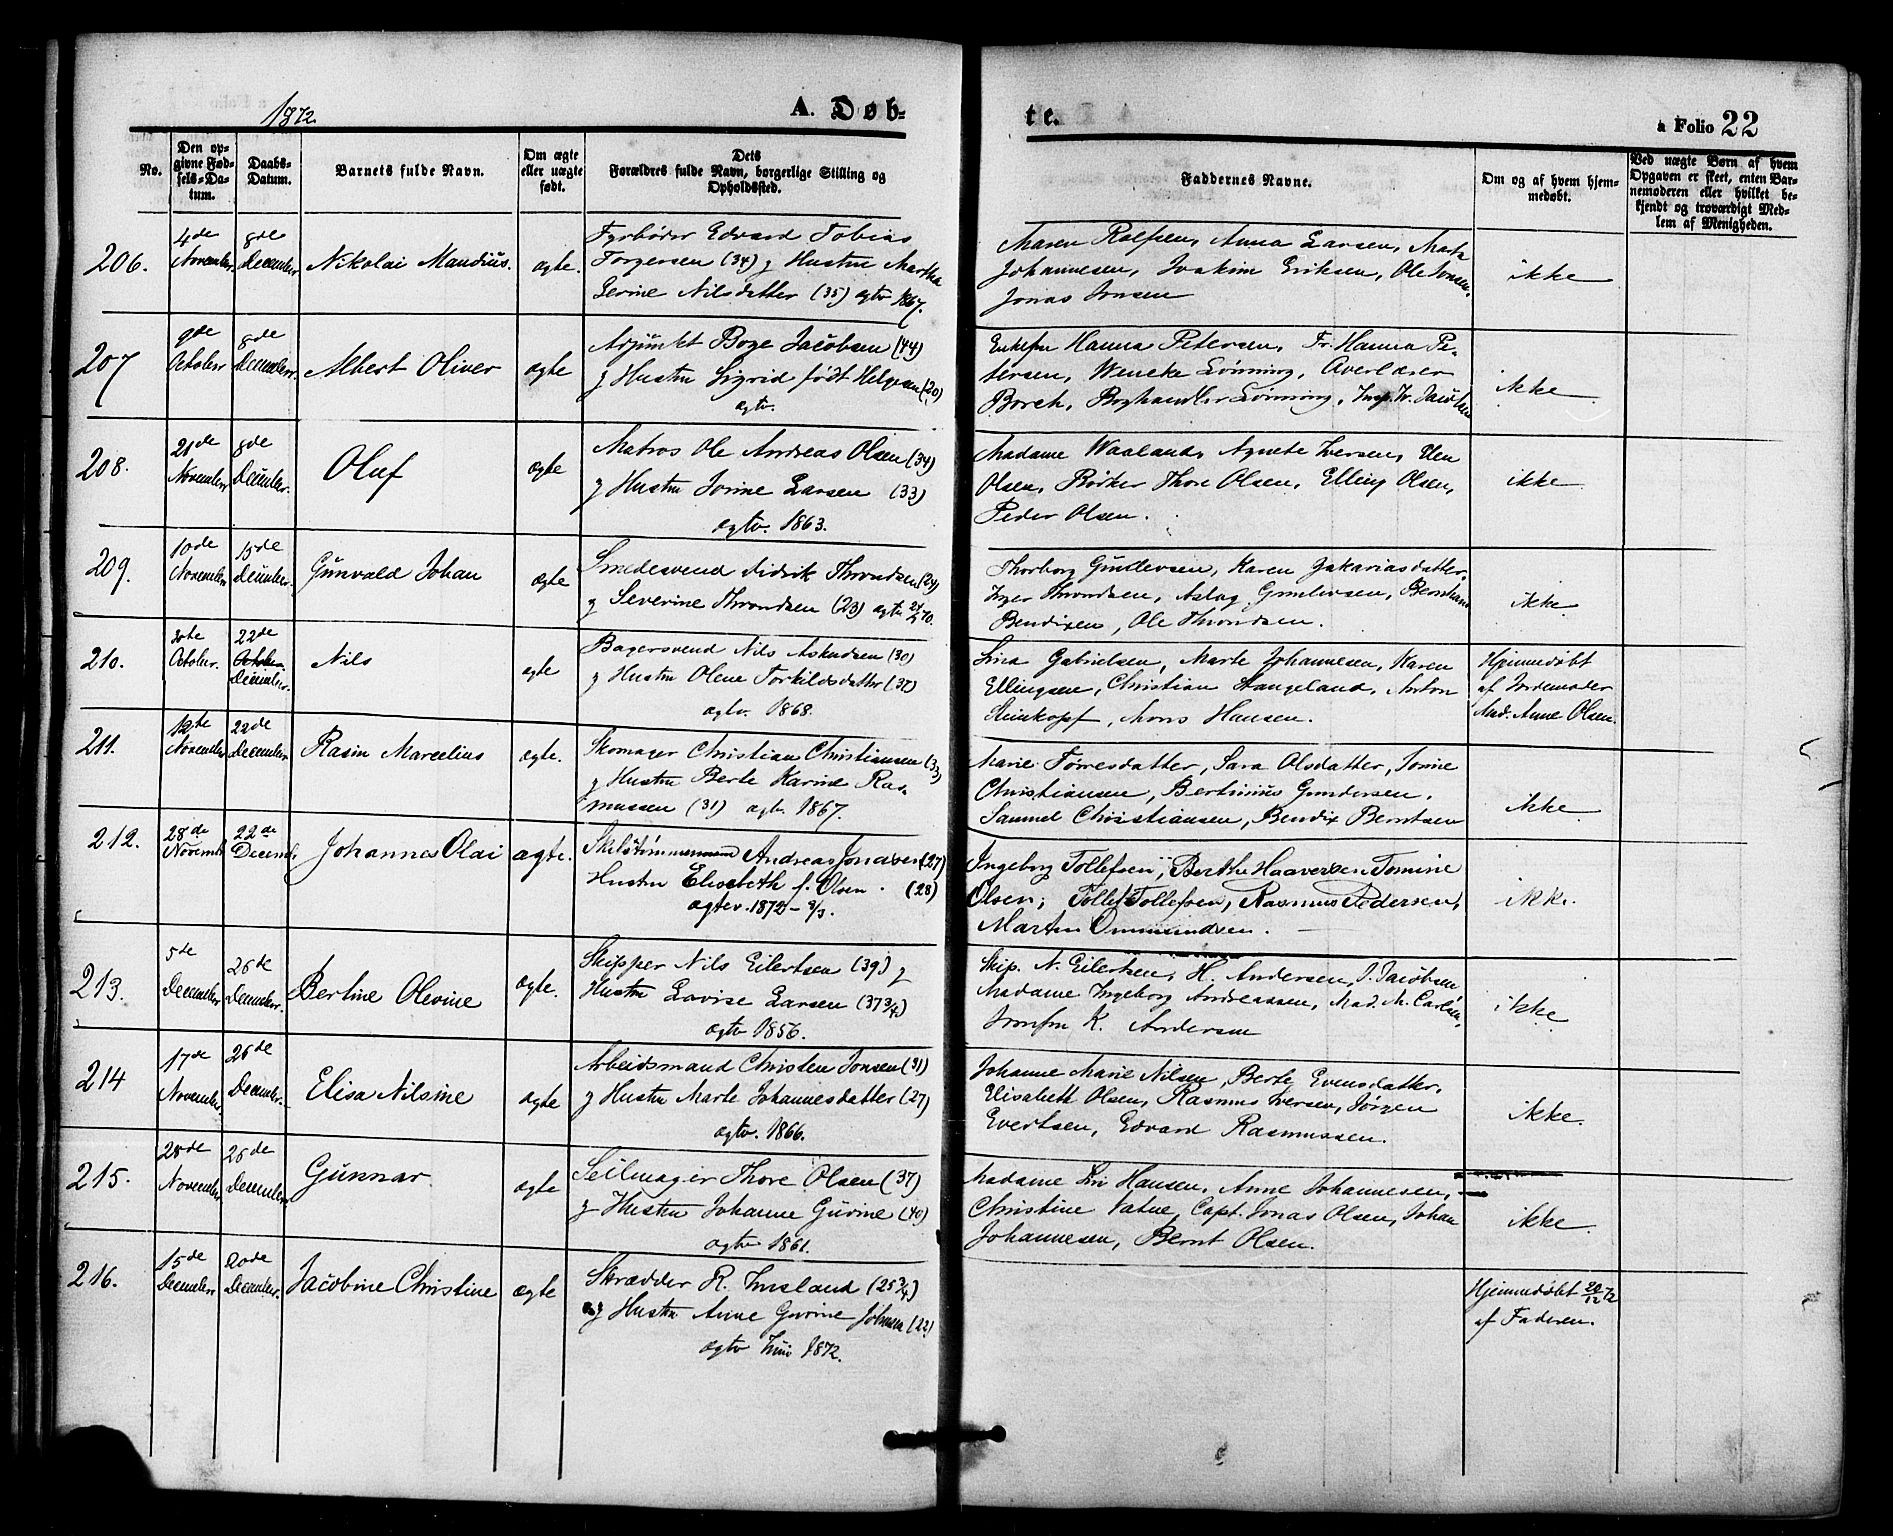 1872.
A. Døb-
te.
a Folio 22
No.
Den op-
givne Fød-
sels-Da-
tum.
Daabs-
Datum.
Barnets fulde Navn.
Om ægte
eller uægte
født.
Dets
Forældres fulde Navn, borgerlige Stilling og
Opholdssted.
Faddernes Navne.
Om og af hvem hjem-
medøbt.
Ved uægte Børn af hvem
Opgaven er skeet, enten Bar-
nemoderen eller hvilket be-
kjendt og troværdigt Med-
lem af Menigheden.
206.
4de
November
8de
December
Nikolai Mandius.
ægte.
Fyrbøder Edvard Tobias
Torgersen (34) g Hustru Martha
Serine Nilsdatter (35) ægtv 1867.
Maren Roelfsen, Anna Larsen, Marta
Johannesen, Joakim Eriksen, Ole Jonsen,
Jonas Jonsen
ikke
207
9de
October
8de
December.
Albert Oliver
ægte
Adjunkt Boye Jacobsen (44)
g Hustru Sigrid født Helgesen (20)
ægtv.
Enkefru Hanna Petersen, Fr. Hanna Pe-
tersen, Weneke Lønning, Overlærer
Borch, Boghandler Lønning, W. Jacobsen
ikke
208.
21de
November
8de
December.
Oluf
ægte
Matros Ole Andreas Olsen (34)
g Hustru Jorine Larsen (33)
ægtv. 1863.
Madame Waaland, Agnete Iversen, Elen
Olsen, Bødker Thore Olsen, Elling Olsen,
Peder Olsen.
ikke
209.
10de
November
15de
December.
Gunvald Johan
ægte
Smedesvend Didrik Throndsen (24)
g Severine Throndsen (23) ægtv 70.
Thorborg Gundersen, Karen Zakariasdatter,
Inger Throndsen, Aslag Gundersen, Bernhard
Bendixen, Ole Throndsen.
ikke
210.
October.
22de
October
December.
Nils
ægte
Bagersvend Nils Aslaksen (30)
g Hustru Olene Torkildsdatter (32)
ægtv. 1868.
Lina Gabrielsen, Marte Johannesen, Karen
Ellingsen, Christian Stangeland, Anton
Steinkopf, Mons Hansen.
Hjemmedøbt
af Jordemoder
Mad. Anne Olsen.
211.
12te
November
22de
December
Rasin Marcelius
ægte.
Skomager Christian Christiansen (33)
g Hustru Berte Karine Ras-
mussen (31) ægtv. 1867.
Marie Torresdatter, Sara Olsdatter, Jorine
Christiansen, Bertinius Gundersen,
Samuel Christiansen, Bendix Berntsen
ikke
212.
28de
Novemb
22de
Decemb.
Johannes Olai
ægte.
Skibstømmermand Andreas Jonassen (27)
Hustru Elisabeth f. Olsen. (28)
ægtev. 1872 - 3/3.
Ingeborg Tollefsen, Berthe Haaversen, Tomine
Olsen, Tollef Tollefsen, Rasmus Pedersen,
Martin Ommundsen.
ikke.
213.
5de
December
26de
December.
Bertine Olevine
ægte.
Skipper Nils Eilertsen (39) g
Hustru Lovise Larsen (37 3/4)
ægtv 1856.
Skip. N. Eilertsen, H. Andersen, I. Jacobsen
Madame Ingeborg Andreassen, Mad. M. Carlsen,
Jomfru K. Andersen
ikke
214
17de
November
26de
December.
Elisa Nilsine
ægte
Arbeidsmand Christen Jonsen (31)
g Hustru Marte Johannesdatter (27)
ægtv. 1866.
Johanne Marie Nilsen, Berte Evensdatter,
Elisabeth Olsen, Rasmus Iversen, Jørgen
Evertsen, Edvard Rasmussen.
ikke.
215.
28de
November
26de
December
Gunnar
ægte
Seilmager Thore Olsen (37)
g Hustru Johanne Gurine (40)
ægtv 1861.
Madame Hansen, Anne Johannesen,
Christine Vatne, Capt. Jonas Olsen, Johan
Johannesen, Bernt Olsen.
ikke
216.
15de
December
20de
December.
Jacobine Christine
ægte
Skrædder R. Imsland (25 3/4)
og Hustru Anne Gurine Johnsen (22)
ægtv Juni 1872.
Hjemmedøbt 20/12 72
af Faderen.